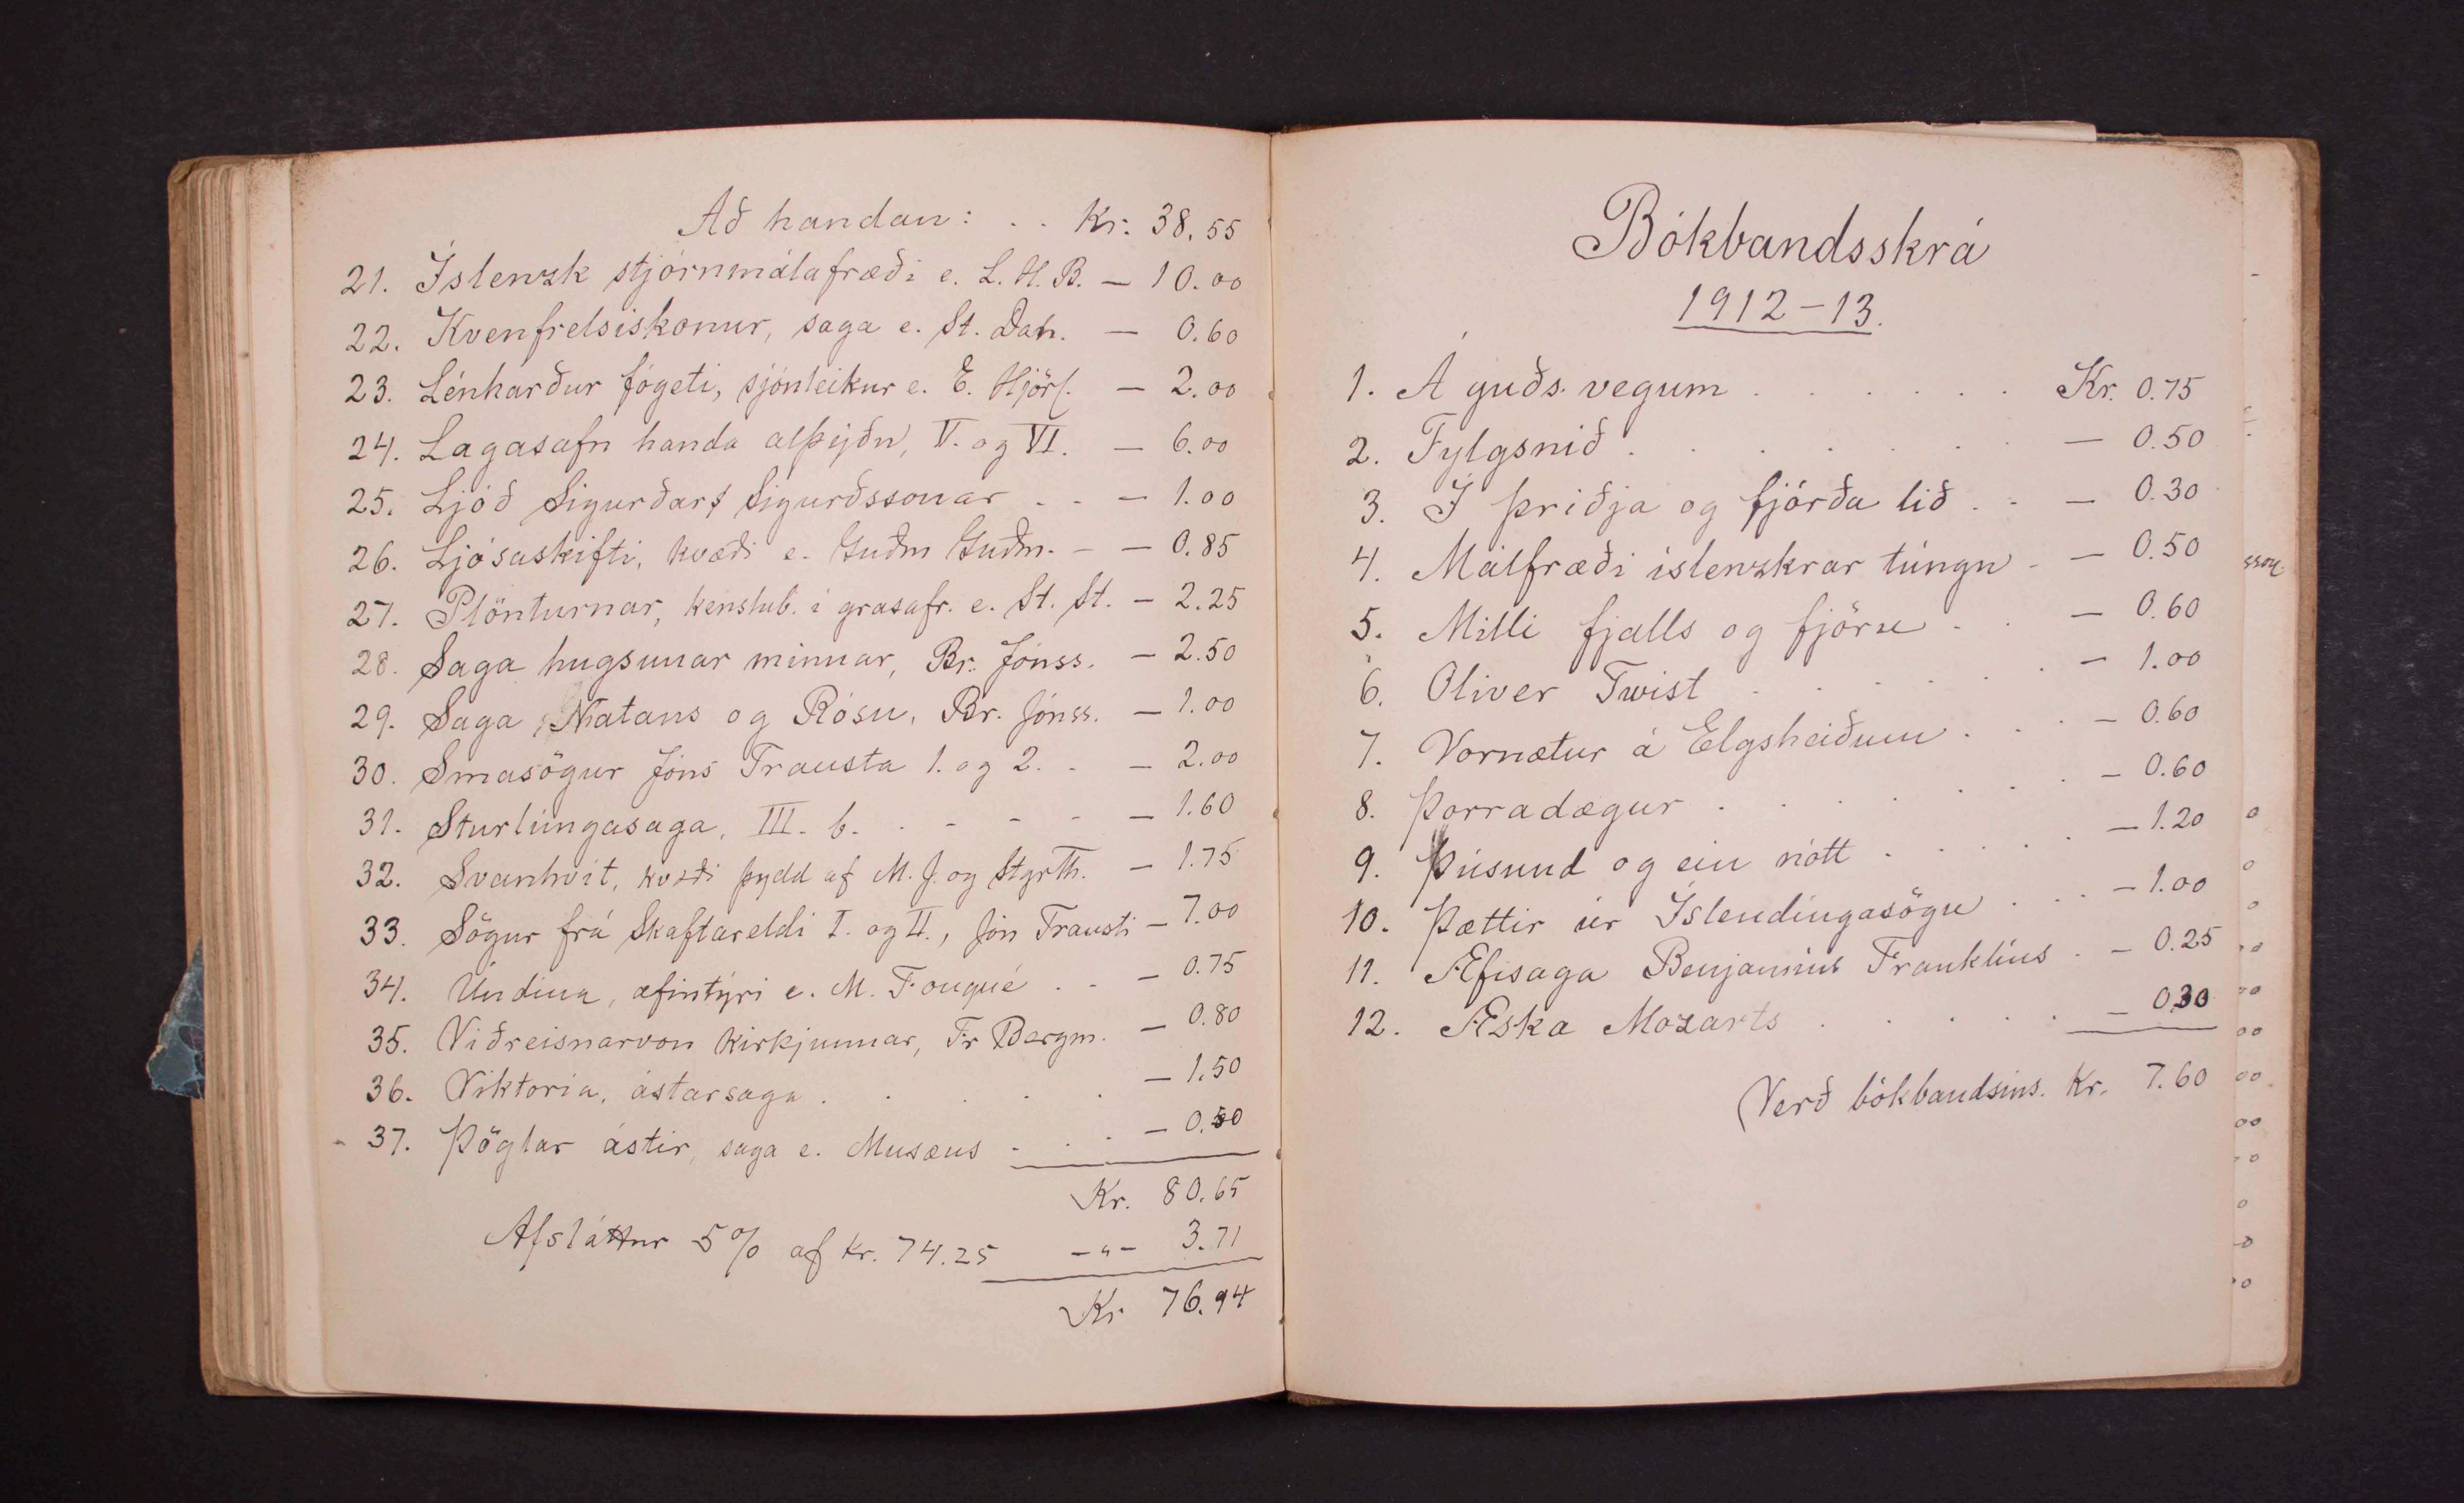 Að handan: . . Kr. 38.55
21. Íslenzk stjórnmálafræði e. L. H. B. — 10.00
22. Kvenfrelsiskonur, saga e. St. Dan. — 0.60
23. Lénharður fógeti, sjónleikur e. E. Hjörl. — 2.00
24. Lagasafn handa alþýðu, V. og VI. — 6.00
25. Ljóð Sigurðar Sigurðssonar . . — 1.00
26. Ljósaskifti, kvæði e. Guðm Guðm. - — 0.85
27. Plönturnar, kenslub. í grasafr. e. St. St. — 2.25
28. Saga hugsunar minnar, Br. Jónss. — 2.50
29. Saga Natans og Rósu, Br. Jónss. — 1.00
30. Smásögur Jóns Trausta 1. og 2. . — 2.00
31. Sturlúngasaga, III. b. . - - - — 1.60
32. Svanhvít, kvæði þydd af M. J. og StgrTh. — 1.75
33. Sögur frá Skaftáreldi I. og II., Jón Trausti — 7.00
34. Úndína, æfintýri e. M. Fouqué . . — 0.75
35. Viðreisnarvon kirkjunnar, Fr Bergm. — 0.80
36. Viktoría, ástarsaga . . . . . — 1.50
37. Þöglar ástir, saga e. Musæus . . . — 0.50
Kr. 80.65
Afsláttur 5% af kr. 74.25 -"- 3.71
Kr 76.94
Bókbandsskrá
1912-13.
1. Á guðs vegum . . . . . . Kr. 0.75
2. Fylgsnið . . . . . . . — 0.50
3. Í þriðja og fjórða lið . . — 0.30
4. Málfræði íslenzkrar túngu . — 0.50
5. Milli fjalls og fjöru . . — 0.60
6. Oliver Twist . . . . . . — 1.00
7. Vornætur á Elgsheiðum . . . — 0.60
8. Þorradægur . . . . . . . — 0.60
9. Þúsund og ein nótt . . . . . — 1.20
10. Þættir úr Íslendíngasögu . . . — 1.00
11. Æfisaga Benjamíns Franklíns . — 0.25
12. Æska Mozarts . . . . . — 0.30
Verð bókbandsins. Kr. 7.60